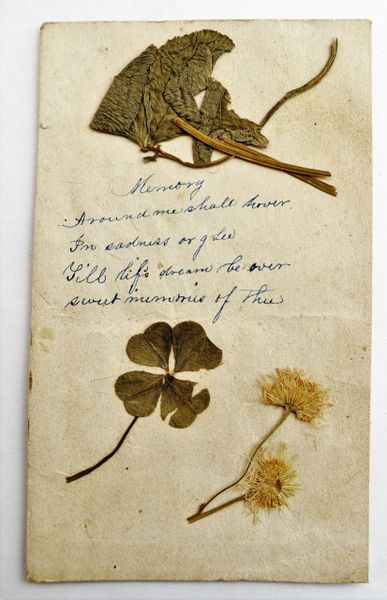 Memory
Around me shall hover
In sadness or glee
Till life's dream be over
sweet memories of thee